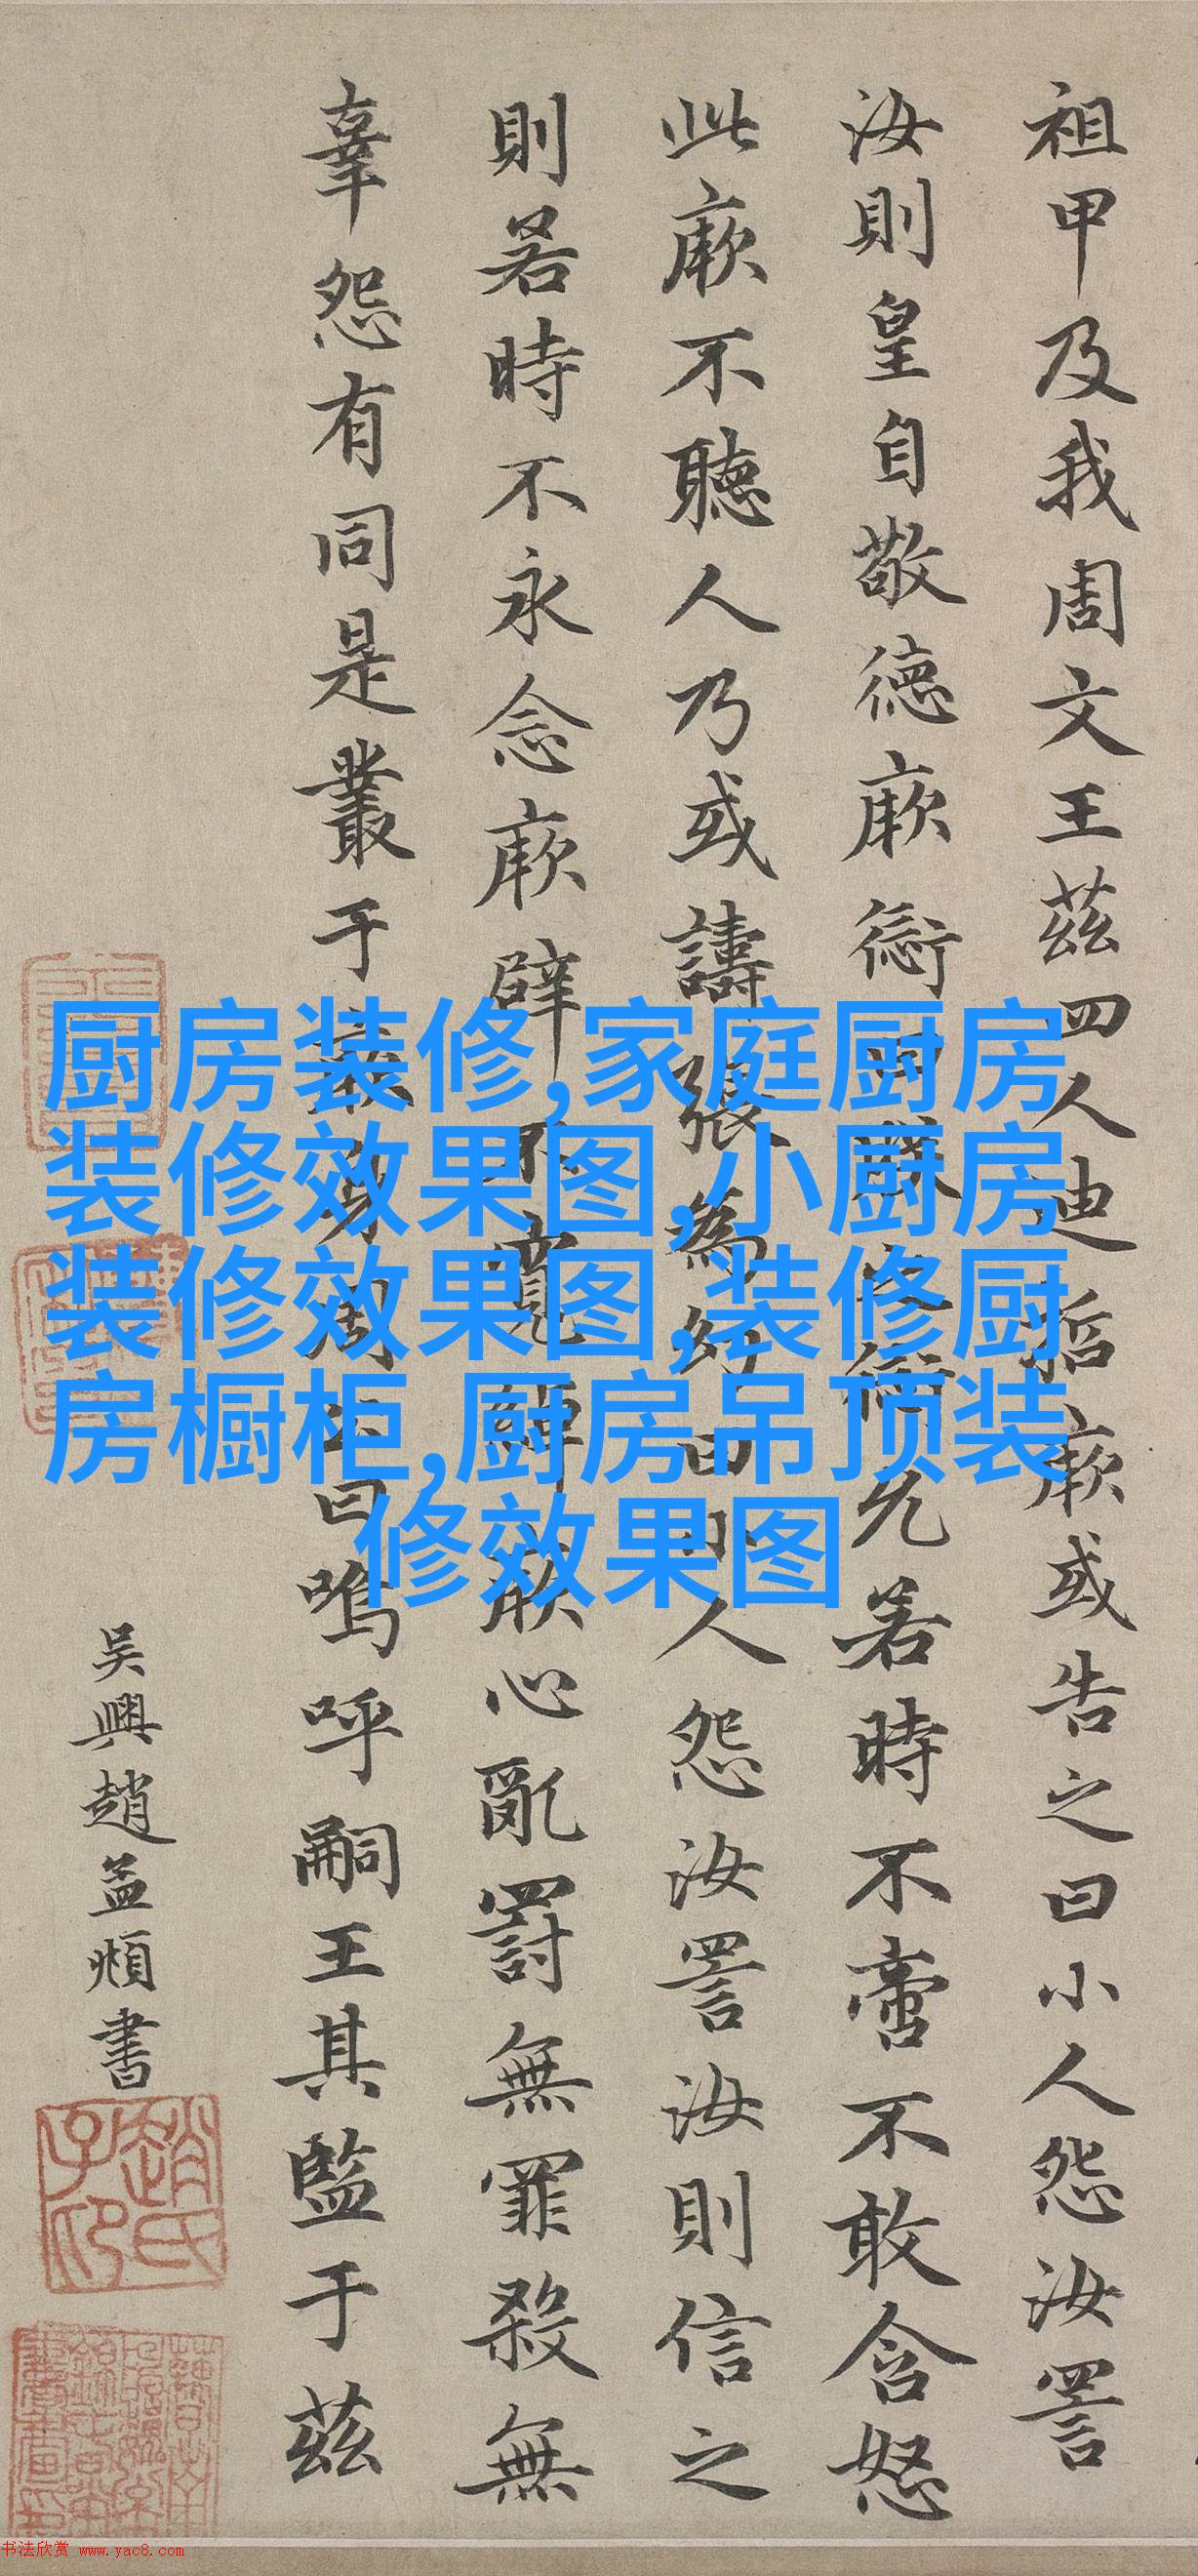 祖甲及我周文王茲四人迪哲厥或告之曰小人怨汝詈
汝則皇自敬德厥愆曰朕之愆允若時不啻不敢含怒
此厥不聽人乃或譸張為幻曰小人怨汝詈汝則信之
則若時不永念厥辟不寬綽厥心亂罰無罪殺無
辜怨有同是叢于厥身周公曰嗚呼嗣王其監于茲
吳興趙孟頫書
趙氏子昂
厨房装修,家庭厨房
装修效果图,小厨房
装修效果图,装修厨
房橱柜,厨房吊顶装
修效果图
书法欣赏 www.yac8.com